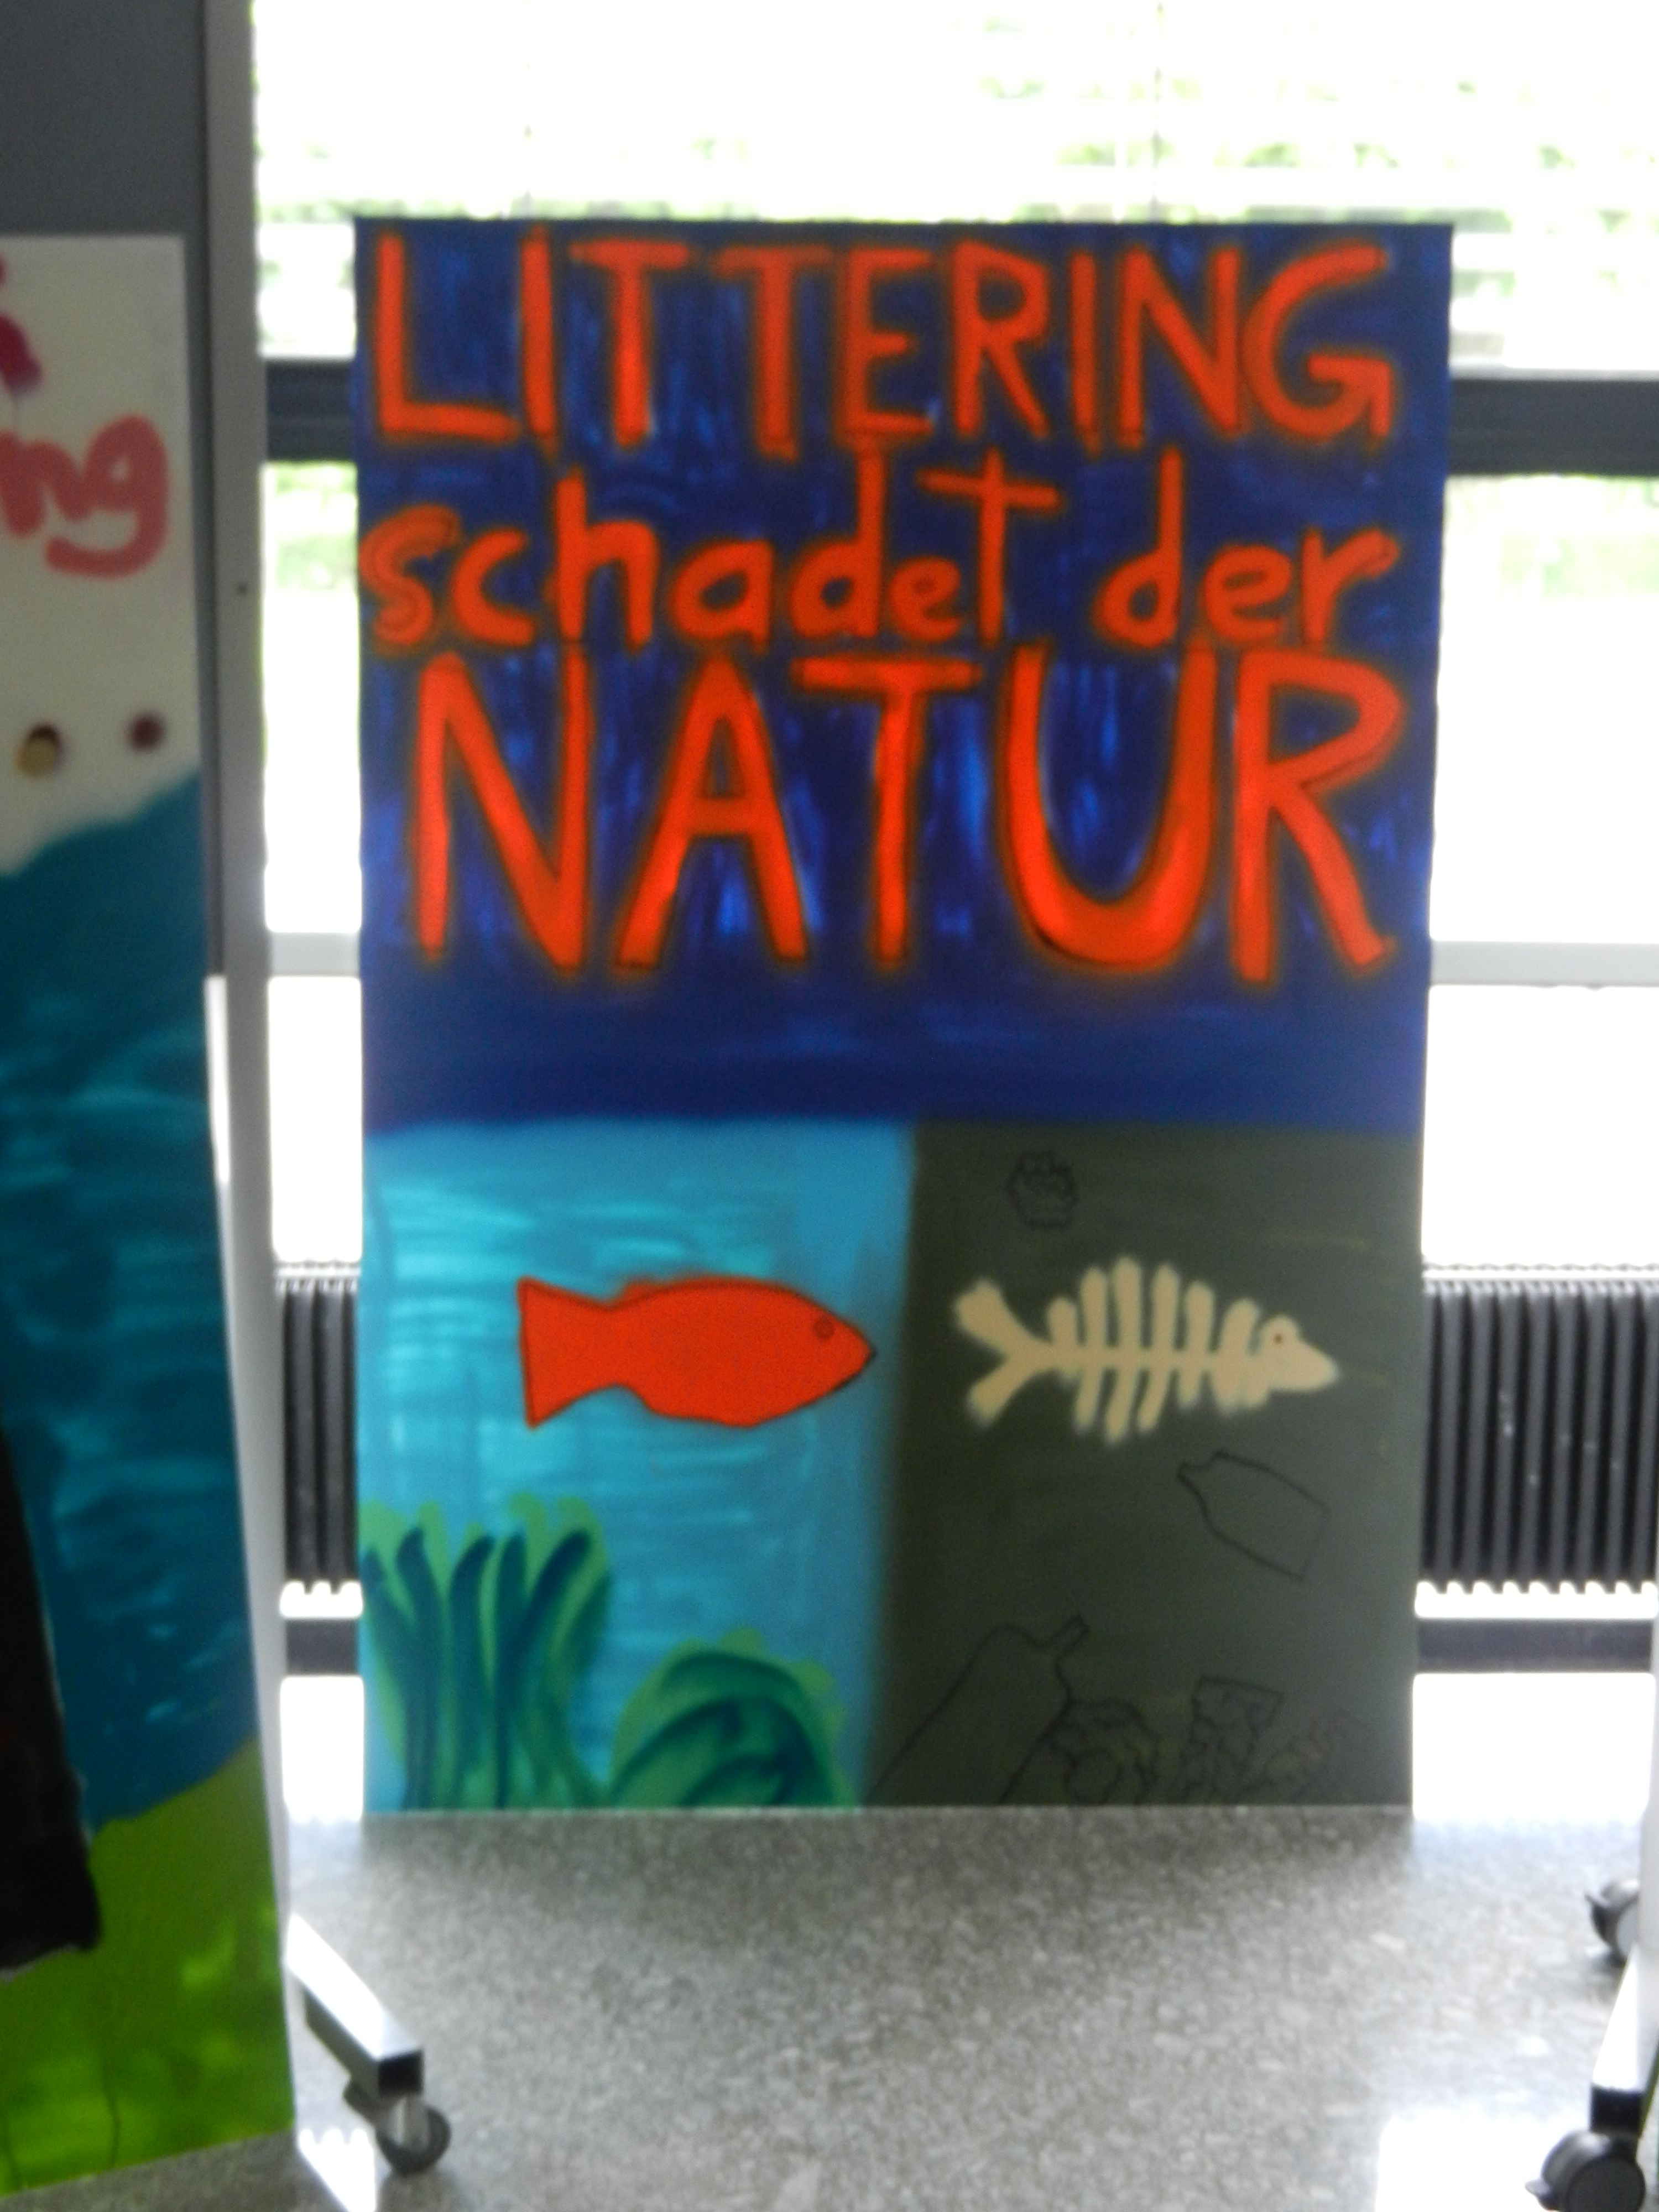 ng
LITTERING
schadet der
NATUR